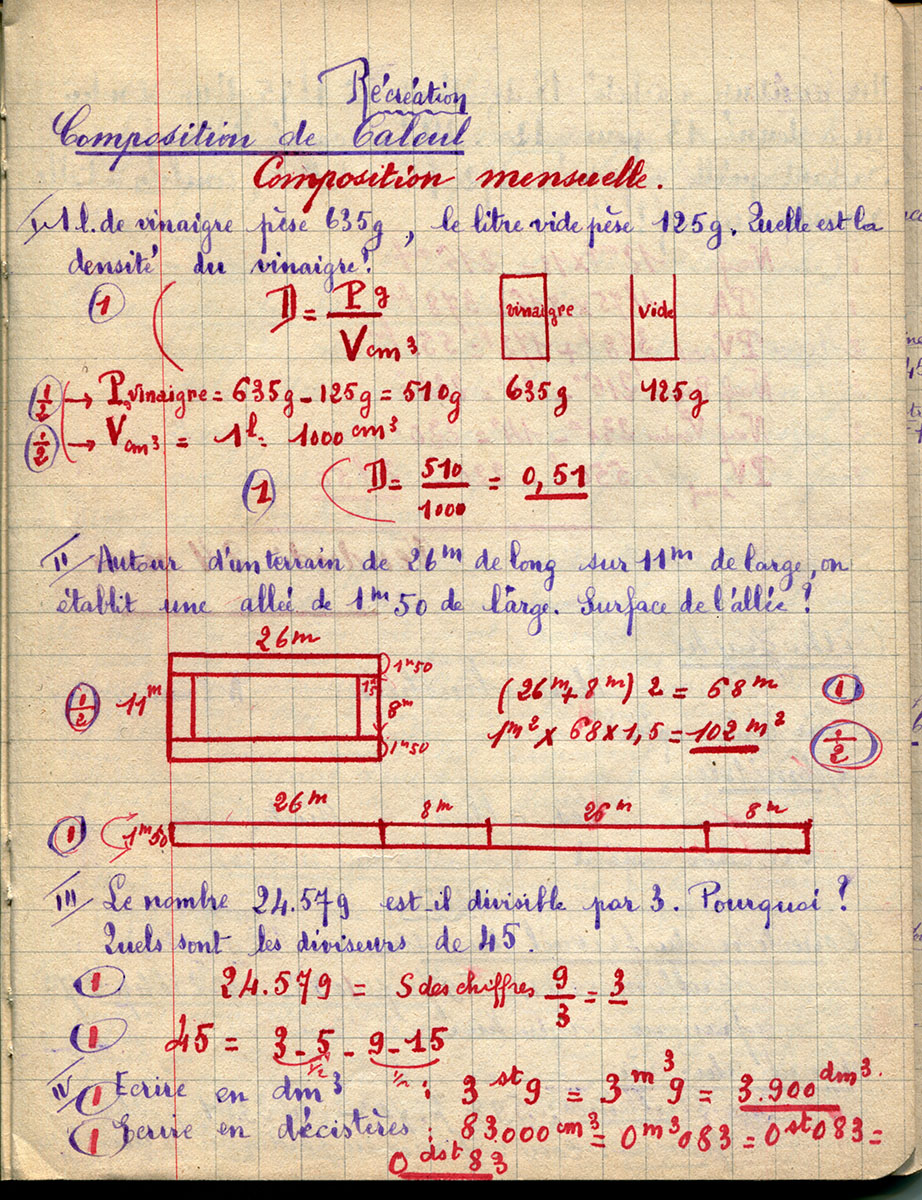 Récréation
Composition de Calcul
Composition mensuelle.
I/ 1 l. de vinaigre pèse 635g, le litre vide pèse 125g. Quelle est la
densité du vinaigre?
1 D = Pg / Vcm³ vinaigre vide
1/2 → P.vinaigre = 635g - 125g = 510g 635g 125g
1/2 → Vcm³ = 1l = 1000cm³
1 D = 510/1000 = 0,51
II/ Autour d'un terrain de 26m de long sur 11m de large, on
établit une allée de 1m50 de large. Surface de l'allée?
26m
1m50
1/2 11m 15 8m (26m + 8m) 2 = 68m 1
1m² x 68 x 1,5 = 102m² 1/2
1m50
26m 8m 26m 8m
1 1m50
III/ Le nombre 24.579 est-il divisible par 3. Pourquoi?
Quels sont les diviseurs de 45.
1 24.579 = S des chiffres 9/3 = 3
1 45 = 3 - 5 - 9 - 15
1/2 1/2
IV/ 1 Ecrire en dm³ : 3st9 = 3m³9 = 3.900dm³.
1 Ecrire en décistères : 83.000cm³ = 0m³083 = 0st083 =
0dst83